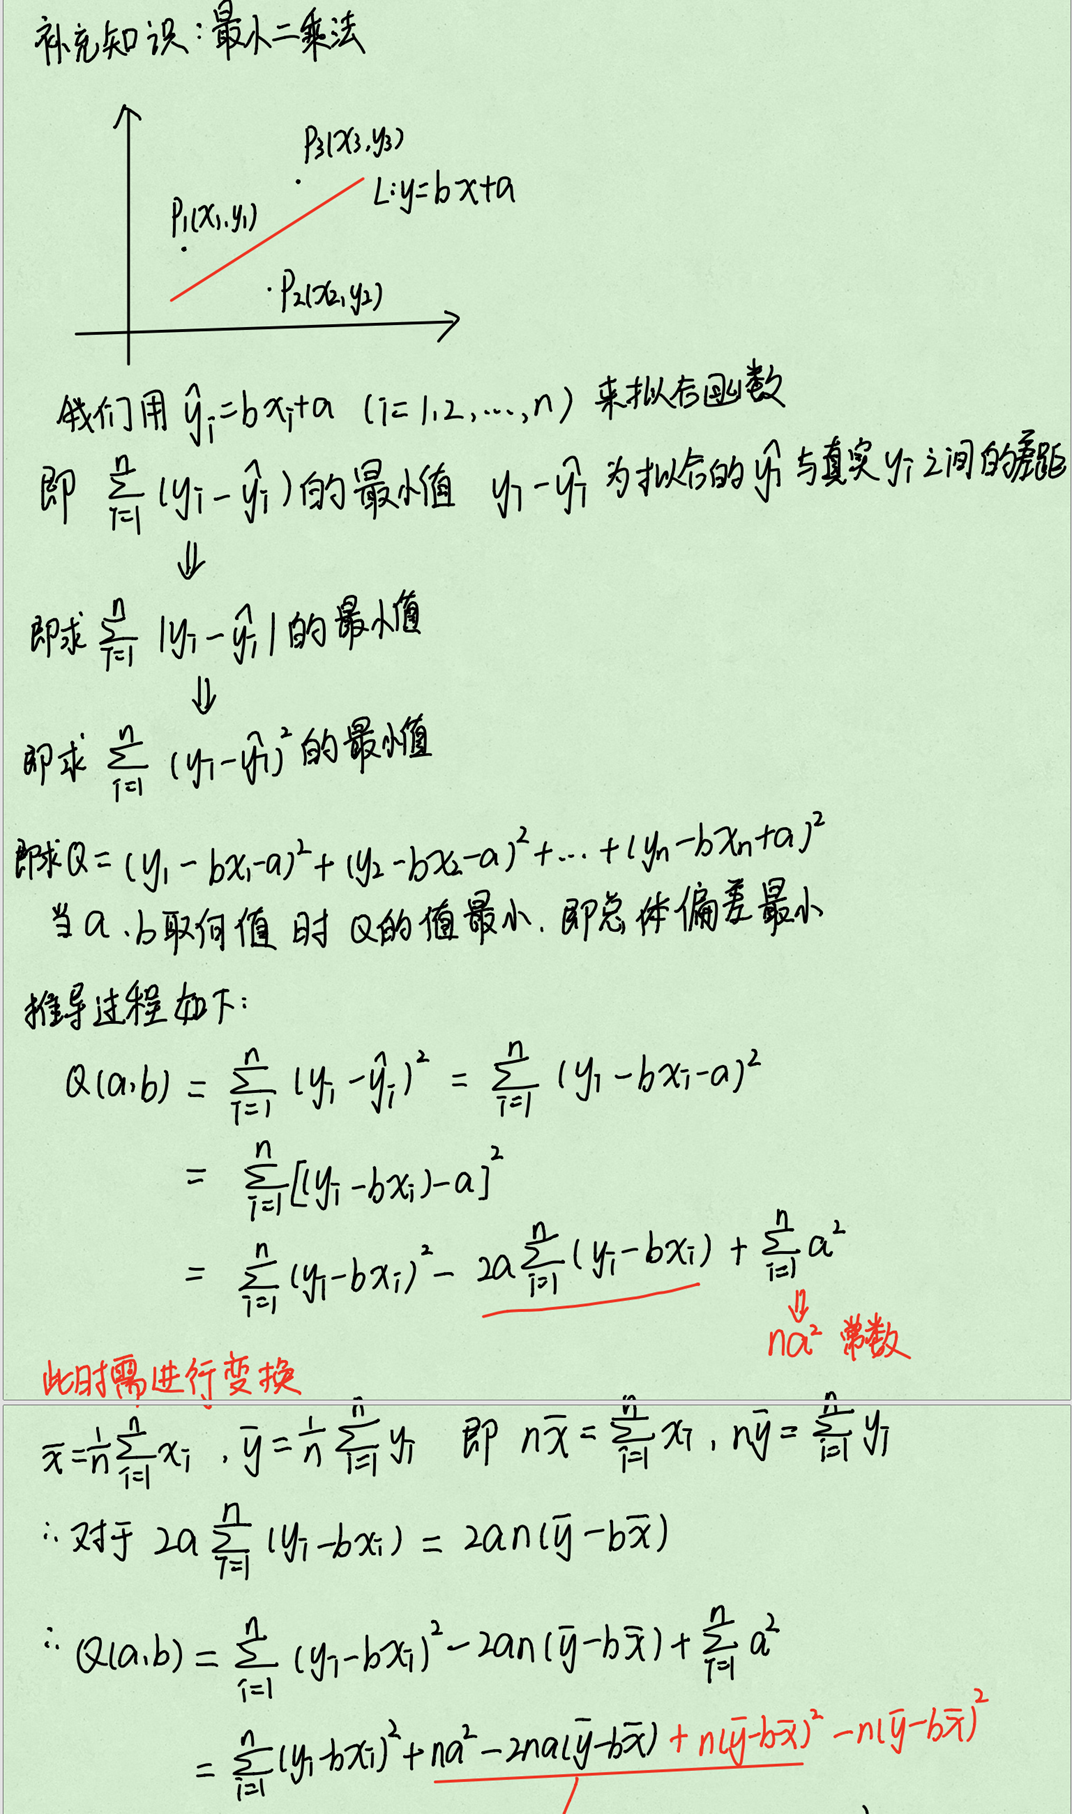 补充知识:最小二乘法
P₃(x₃,y₃)
L:y=bx+a
P₁(x₁,y₁)
P₂(x₂,y₂)
我们用 ŷᵢ=bxᵢ+a (i=1,2,...,n) 来拟合函数
即 ∑ᵢ₌₁ⁿ (yᵢ-ŷᵢ)的最小值 yᵢ-ŷᵢ 为拟合的 ŷᵢ 与真实 yᵢ 之间的差距
⇓
即求 ∑ᵢ₌₁ⁿ |yᵢ-ŷᵢ| 的最小值
⇓
即求 ∑ᵢ₌₁ⁿ (yᵢ-ŷᵢ)² 的最小值
即求Q=(y₁-bx₁-a)²+(y₂-bx₂-a)²+...+(yₙ-bxₙ+a)²
当a、b取何值时Q的值最小.即总体偏差最小
推导过程如下:
Q(a,b) = ∑ᵢ₌₁ⁿ (yᵢ-ŷᵢ)² = ∑ᵢ₌₁ⁿ (yᵢ-bxᵢ-a)²
= ∑ᵢ₌₁ⁿ [(yᵢ-bxᵢ)-a]²
= ∑ᵢ₌₁ⁿ (yᵢ-bxᵢ)² - 2a∑ᵢ₌₁ⁿ (yᵢ-bxᵢ) + ∑ᵢ₌₁ⁿ a²
⇓
na² 常数
此时需进行变换
x̄=1/n ∑ᵢ₌₁ⁿ xᵢ , ȳ=1/n ∑ᵢ₌₁ⁿ yᵢ 即 nx̄=∑ᵢ₌₁ⁿ xᵢ, nȳ=∑ᵢ₌₁ⁿ yᵢ
∴ 对于 2a∑ᵢ₌₁ⁿ (yᵢ-bxᵢ) = 2an(ȳ-bx̄)
∴ Q(a,b) = ∑ᵢ₌₁ⁿ (yᵢ-bxᵢ)²-2an(ȳ-bx̄)+∑ᵢ₌₁ⁿ a²
= ∑ᵢ₌₁ⁿ (yᵢ-bxᵢ)²+na²-2na(ȳ-bx̄)+n(ȳ-bx̄)²-n(ȳ-bx̄)²